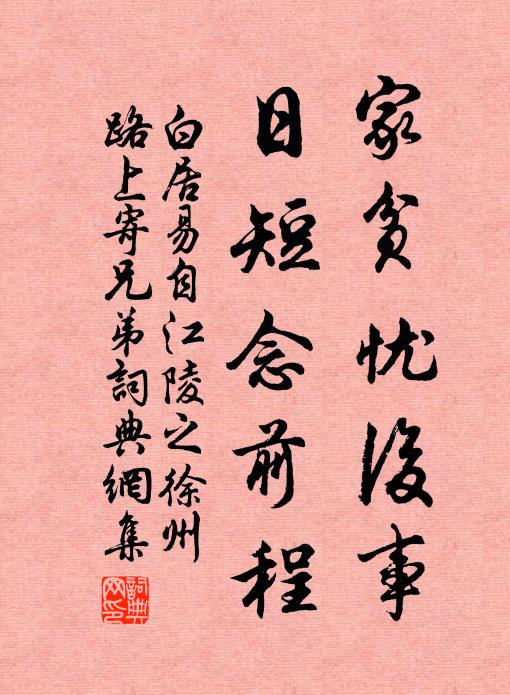 家贫忧後事
日短念前程
白居易自江陵之徐州
路上寄兄弟詞典網集
詞典网印